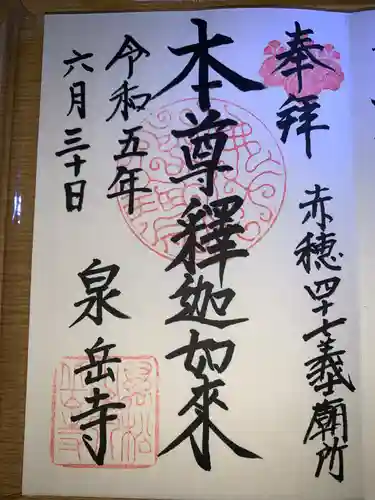 奉拝
赤穂四十七義士廟所
本尊釋迦如來
令和五年
六月三十日
泉岳寺